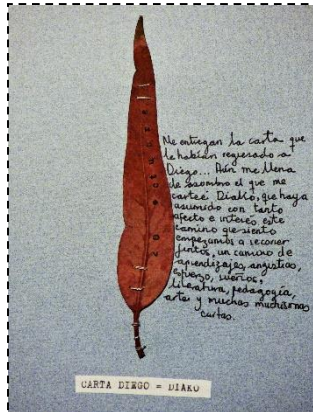 Me entregan la carta que
le habían regresado a
Diego... Aún me llena
de asombro el que me
cartee Diako, que haya
asumido con tanto
afecto e interés este
camino que siento
empezamos a recorrer
juntos, un camino de
aprendizajes, angustias,
esfuerzo, sueños,
literatura, pedagogía,
arte y muchas muchísimas
cartas.
CARTA DIEGO = DIAKO